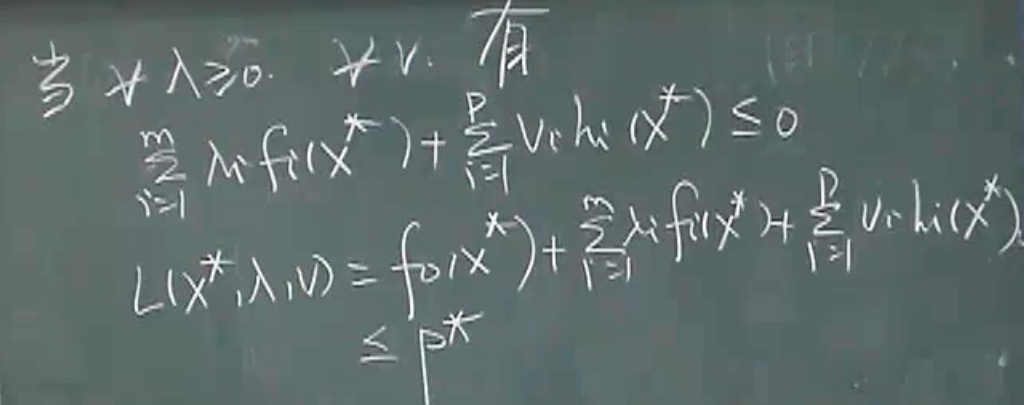 当 ∀ λ≥0. ∀ v. 有
∑_{i=1}^{m} λi fi(x*) + ∑_{i=1}^{p} vi hi(x*) ≤ 0
L(x*, λ, v) = f0(x*) + ∑_{i=1}^{m} λi fi(x*) + ∑_{i=1}^{p} vi hi(x*)
≤ p*